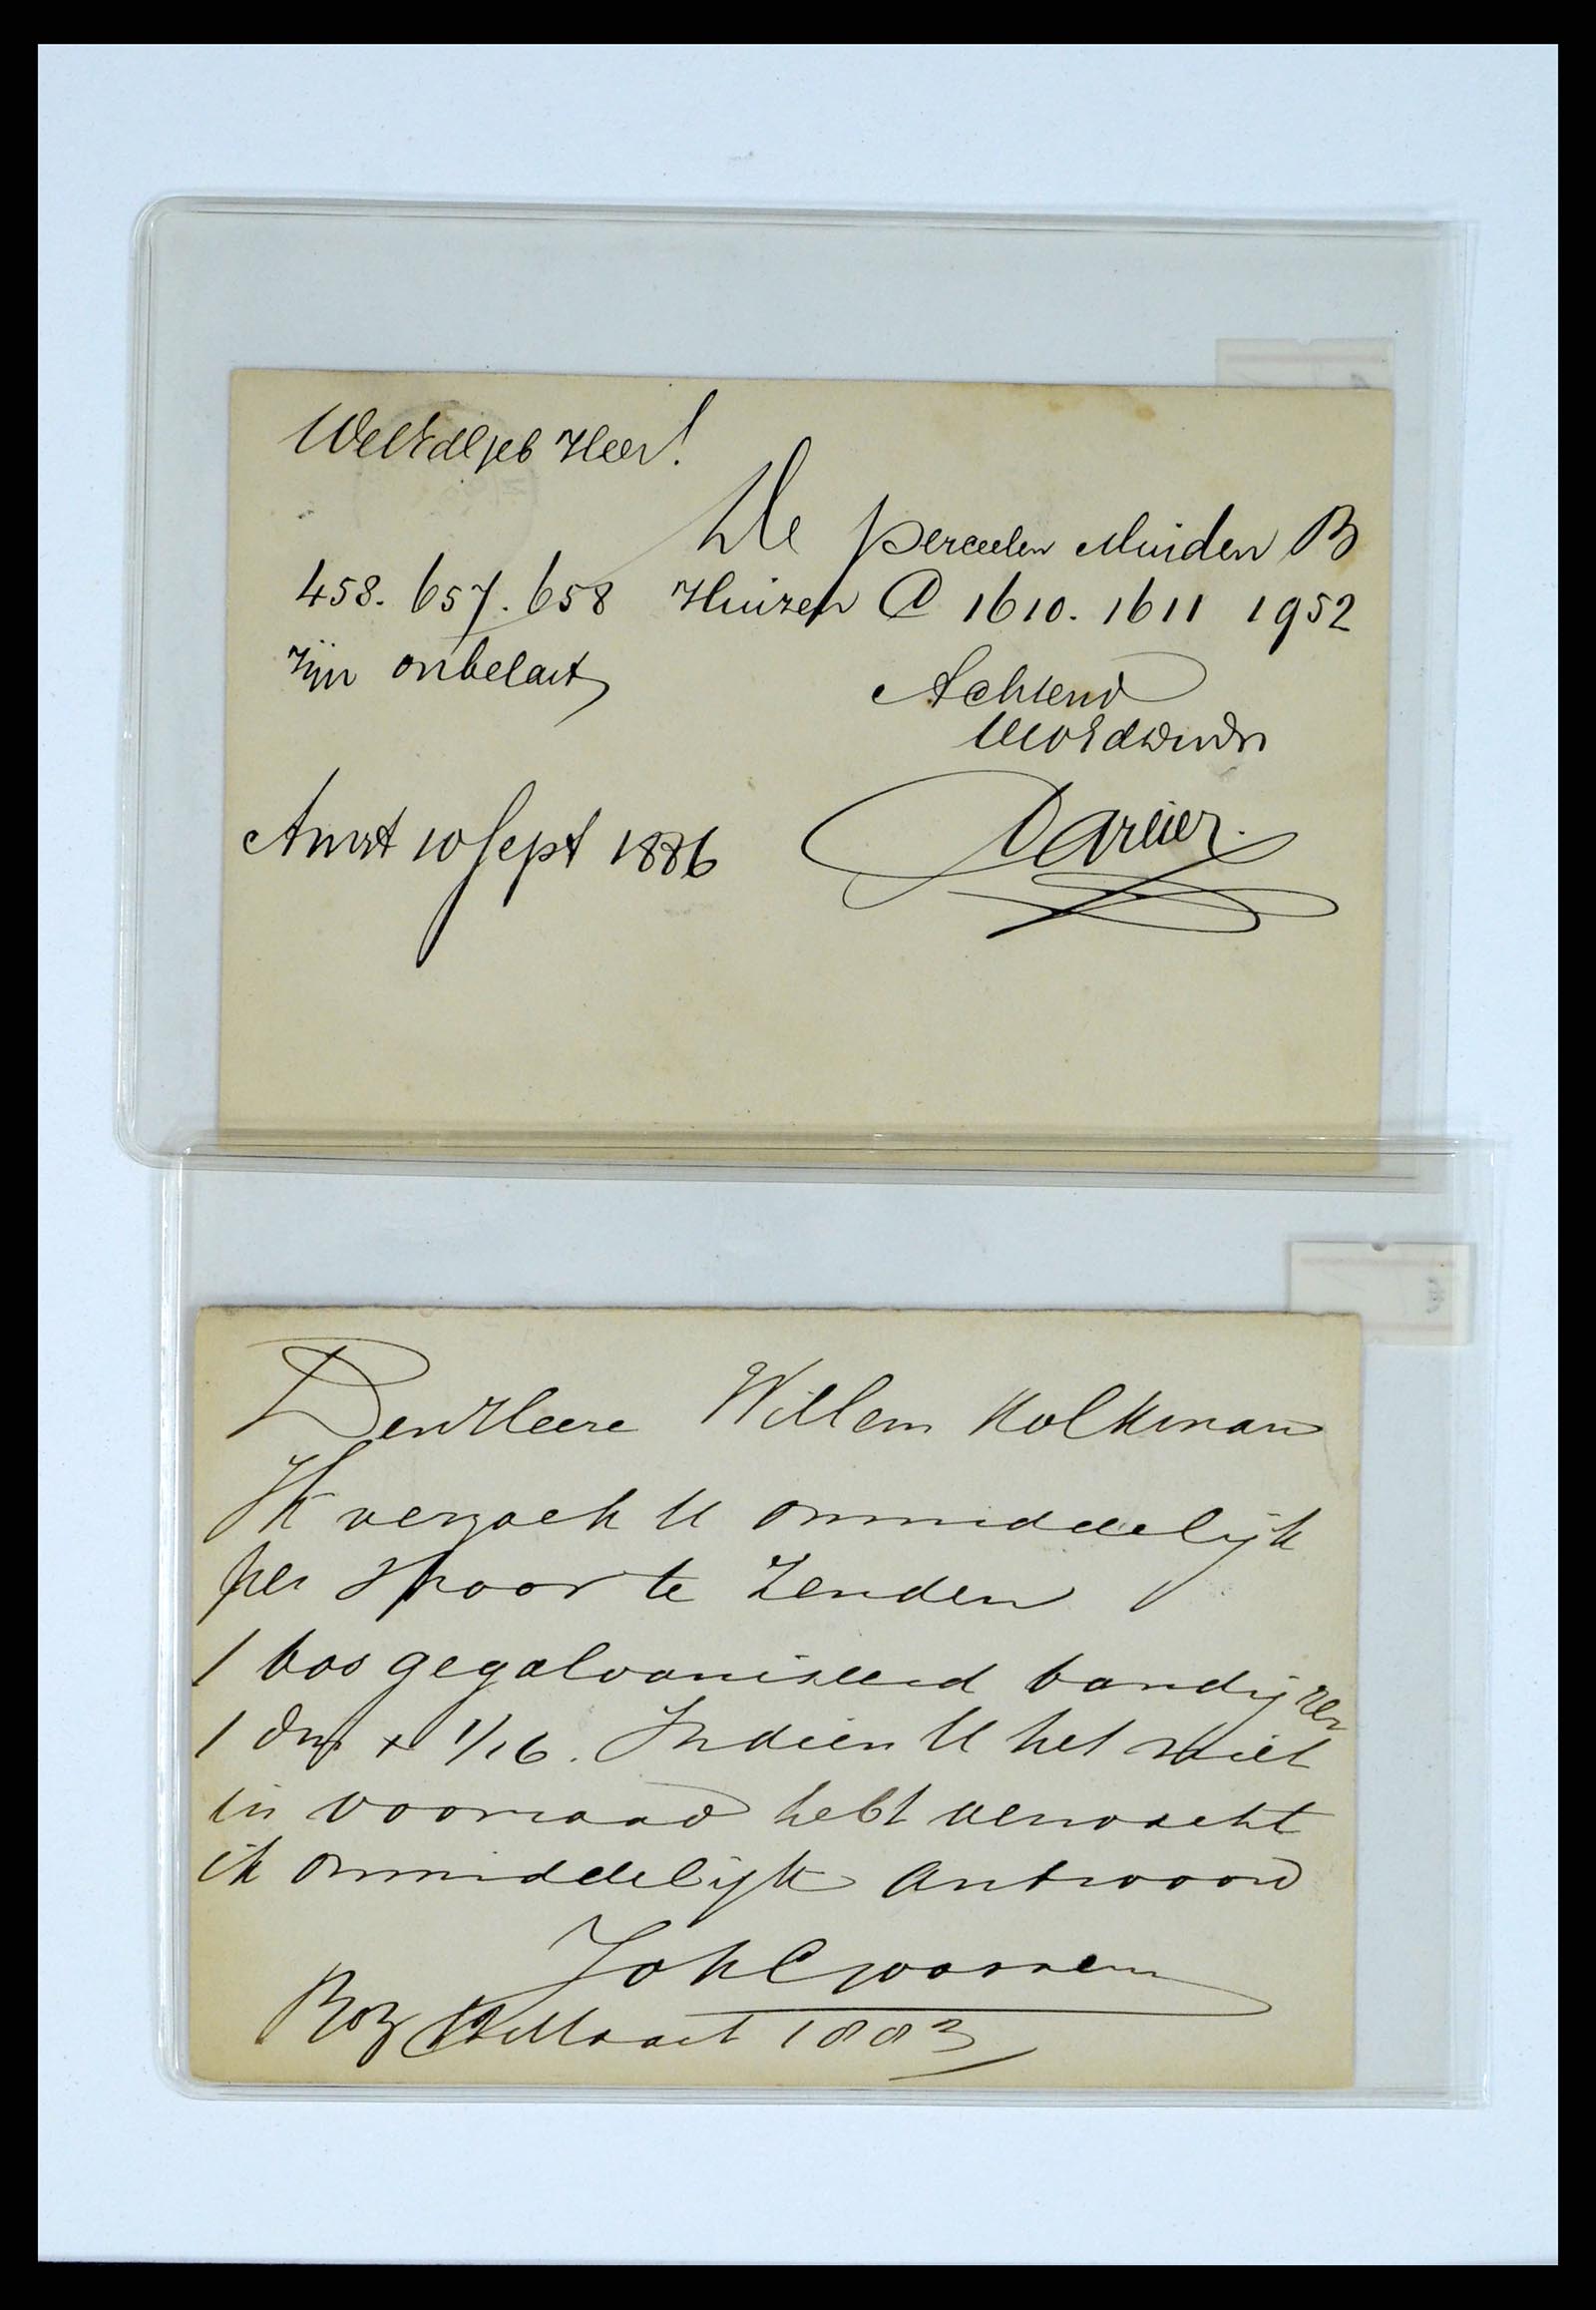 WelEdelgeb Heer!
De perceelen Muiden B
458. 657. 658 Huizen C 1610. 1611 1952
zijn onbelast
Achtend
UwEdDwDr
Amst 10 Sept 1886
Den Heere Willem Kolkman
Ik verzoek U onmiddelijk
per spoor te Zenden
1 bos gegalvaniseerd bandijzer
1 dm x 1/16. Indien U het niet
in voorraad hebt verwacht
ik onmiddelijk antwoord
Boz Maart 1883